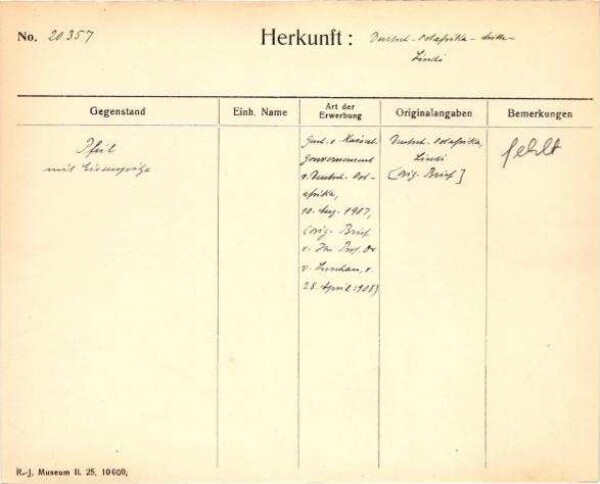 No. 20357
Herkunft: Deutsch-Ostafrika -
Lindi
Gegenstand
Einh. Name
Art der
Erwerbung
Originalangaben
Bemerkungen
Pfeil
mit Eisenspitze
Gesch. v. Kaiserl.
Gouvernement
v. Deutsch-Ost-
afrika,
10. Aug. 1907,
(orig. Brief
v. Hrn Prof. Dr
v. Luschan, v.
28. April 1908)
Deutsch-Ostafrika,
Lindi
[Orig. Brief]
fehlt
R.-J. Museum II. 25. 10000,